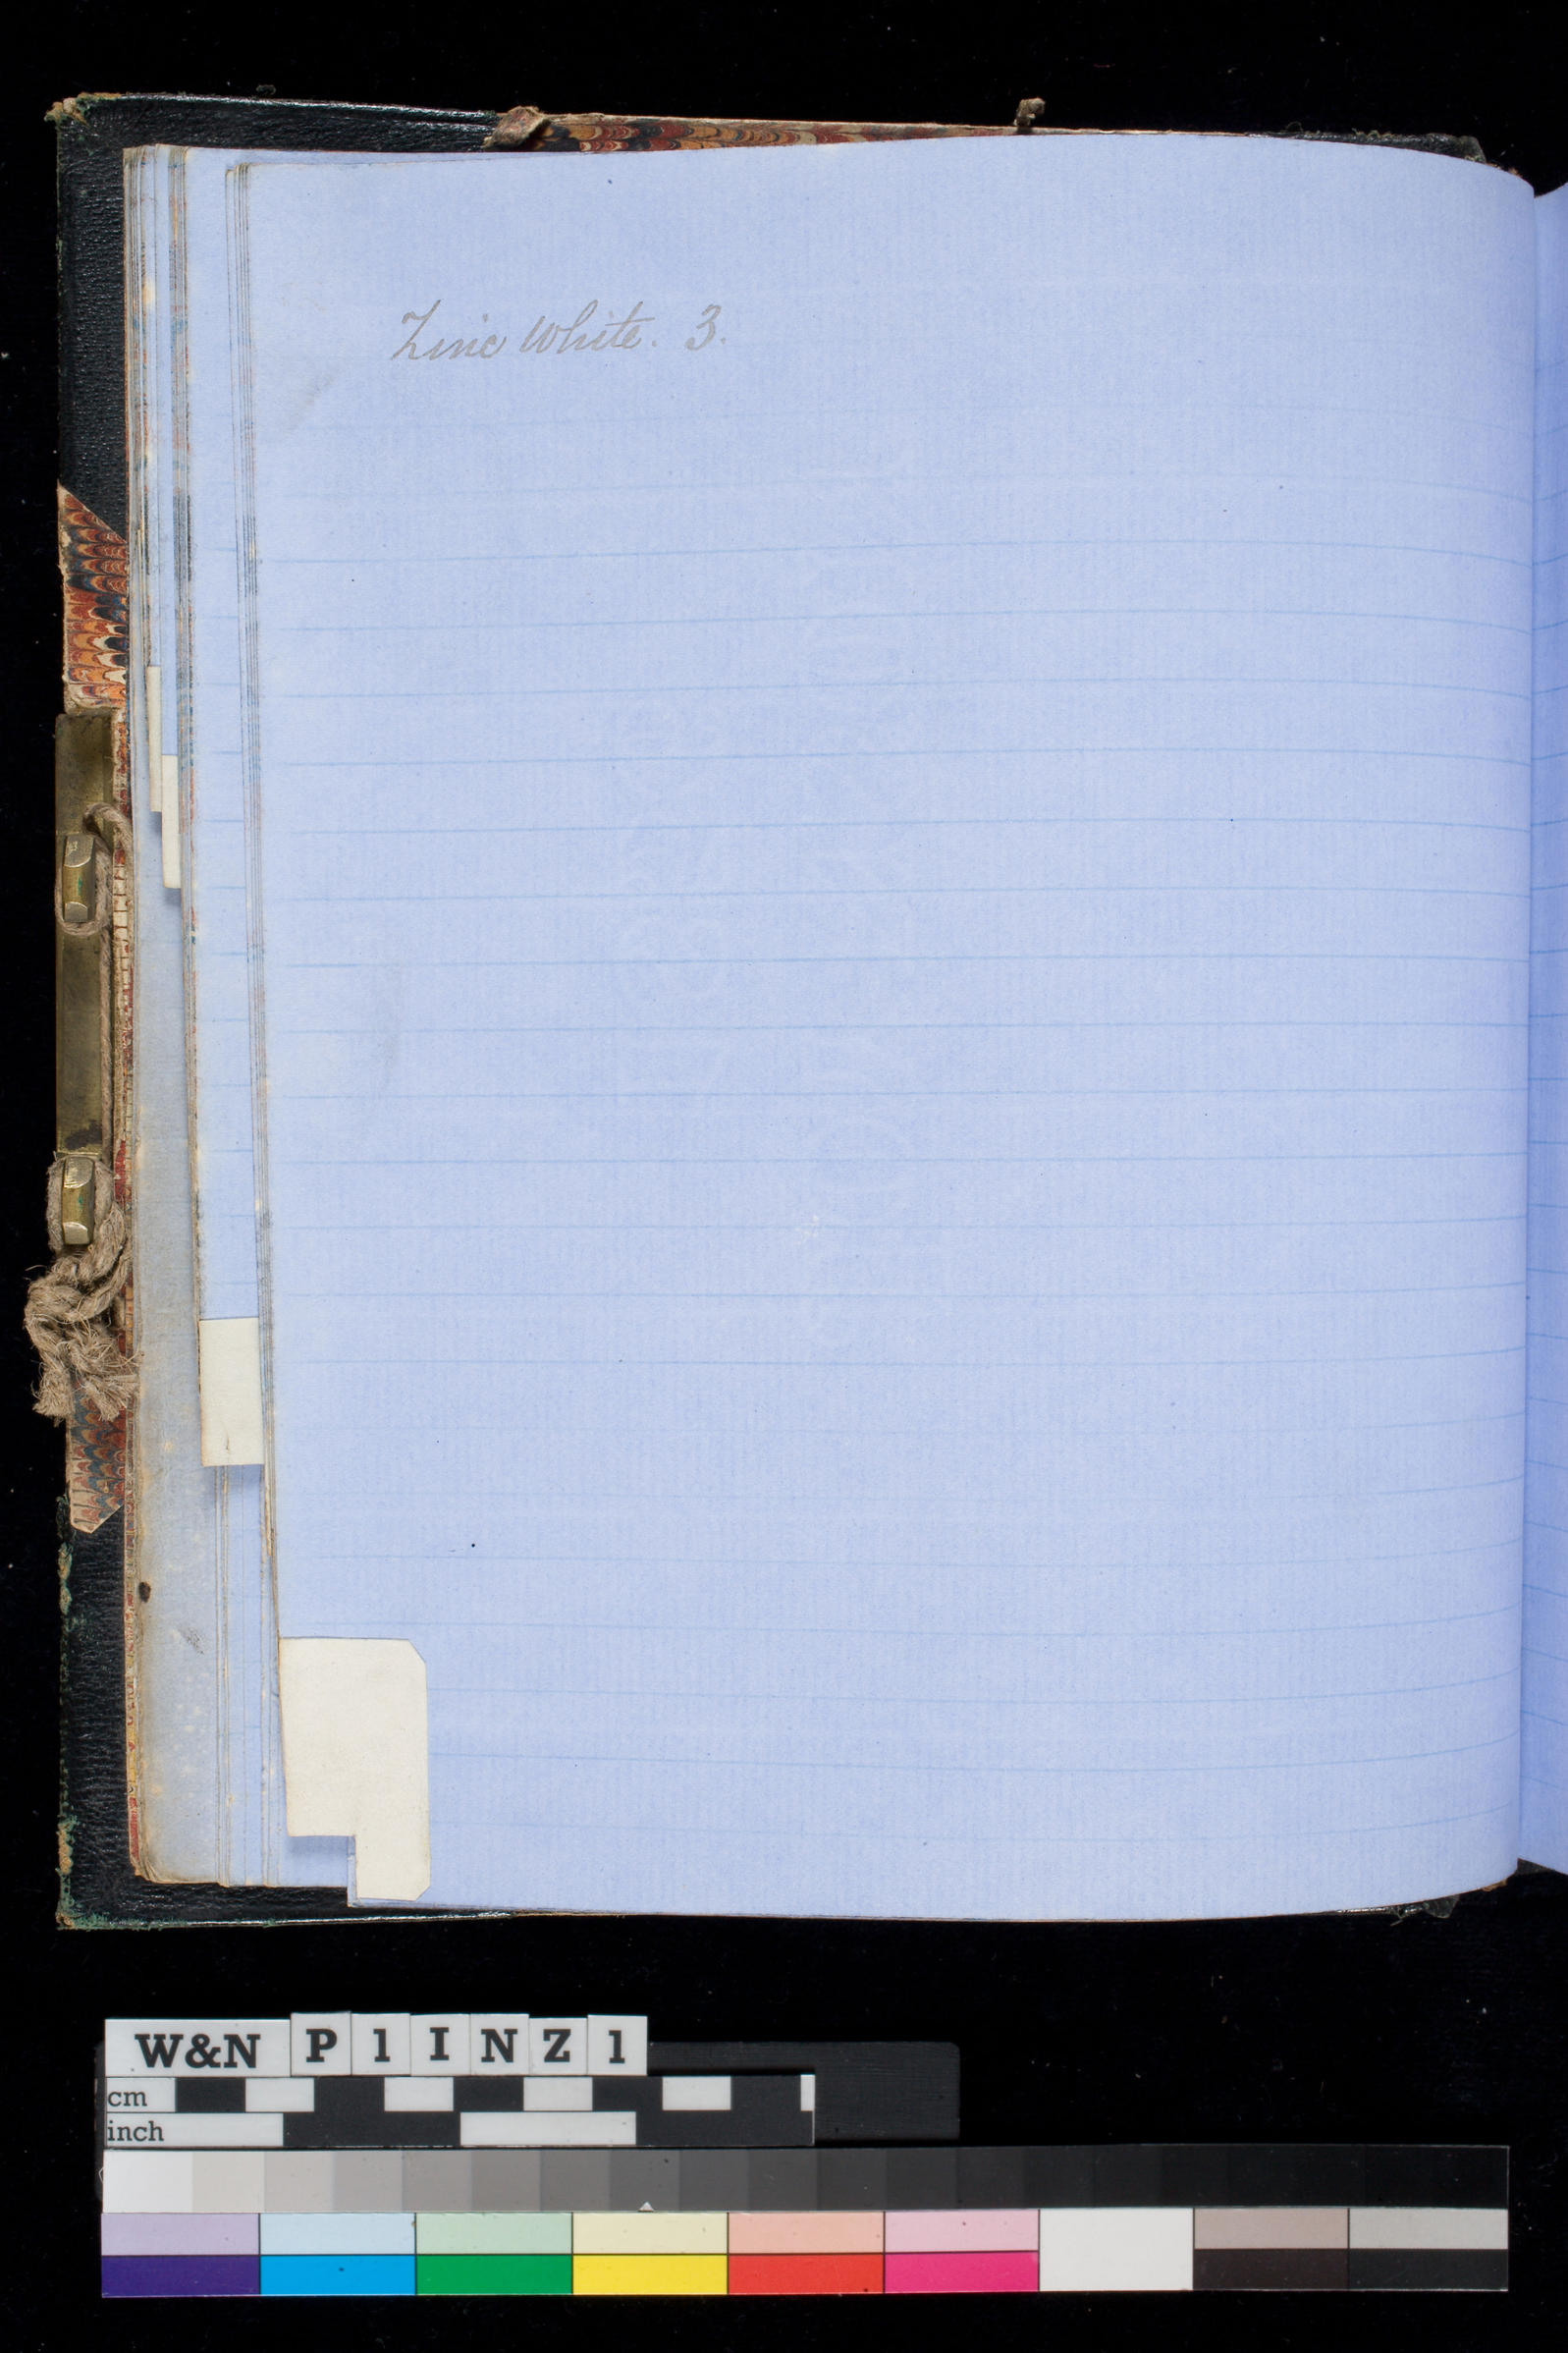 Zinc White. 3.
W&N P1INZ1
cm
inch